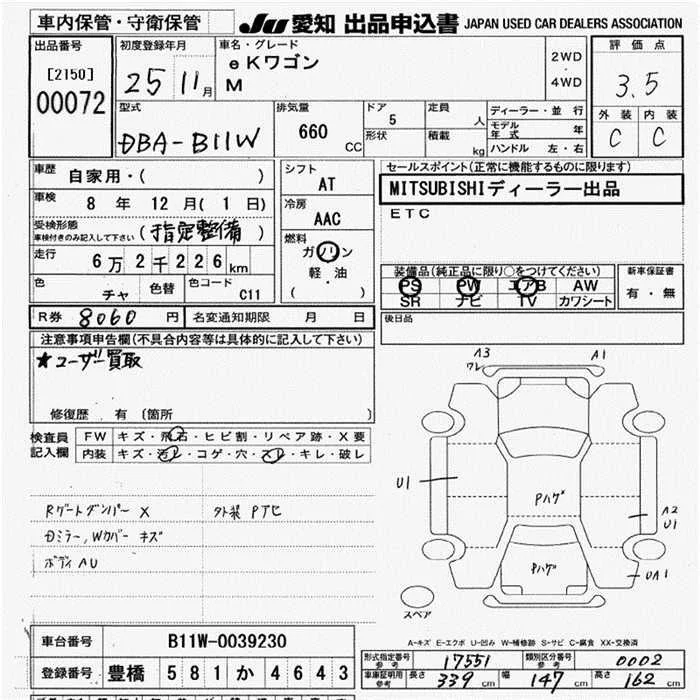 車内保管・守衛保管
JU 愛知 出品申込書 JAPAN USED CAR DEALERS ASSOCIATION
出品番号
[2150]
00072
初度登録年月
25 11月
車名・グレード
eKワゴン
M
2WD
・
4WD
評価点
3.5
外装 内装
C C
型式
DBA-B11W
排気量
660 CC
ドア
5
形状
定員
人
積載
kg
ディーラー・並行
モデル年式 年
ハンドル 左・右
車歴 自家用・( )
車検 8年 12月(1日)
受検形態
車検付きのみ記入して下さい (指定整備)
走行 6万2千226km
色 チャ 色替 色コード C11
シフト
AT
冷房
AAC
燃料
ガソリン
軽・油
( )
セールスポイント(正常に機能するものに限ります)
MITSUBISHIディーラー出品
ETC
装備品(純正品に限り○をつけてください)
PS PW エアB AW
SR ナビ TV カワシート
新車保証書
有・無
R券 8060円 名変通知期限 月 日
後日品
注意事項申告欄(不具合内容等は具体的に記入して下さい)
★ユーザー買取
修復歴 有 (箇所 )
検査員
記入欄
FW キズ・飛石・ヒビ割・リペア跡・X要
内装 キズ・汚レ・コゲ・穴・スレ・キレ・破レ
RゲートダンパーX 外装 Pアセ
Dミラー,Wカバー キズ
ボディ AU
A3
ワレ
A1
U1
Pハゲ
A2
U1
Pハゲ
UA1
スペア
A-キズ E-エクボ U-凹み W-補修跡 S-サビ C-腐食 XX-交換済
車台番号 B11W-0039230
登録番号 豊橋 581 か 4643
型式指定番号
参考 17551
類別区分番号
参考 0002
車庫証明用
参考 長さ 339cm 幅 147cm 高さ 162cm